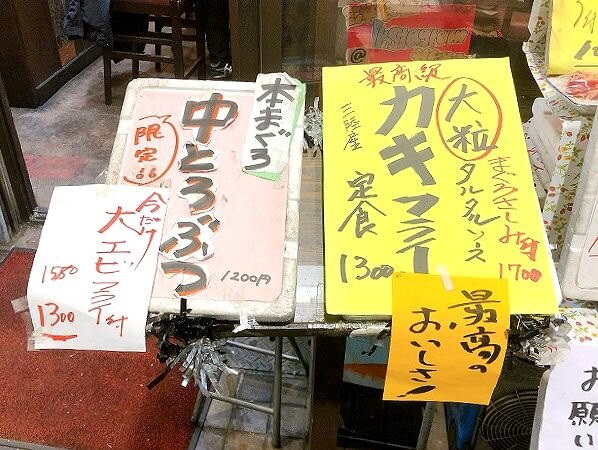 本まぐろ
中とろぶつ
限定品
1200円
今だけ
大エビフライ付
1580
1300
最高級
大粒
カキフライ
三陸産
定食
1300
タルタルソース
まぐろさしみ付
1700
最高の
おいしさ!
お
願い